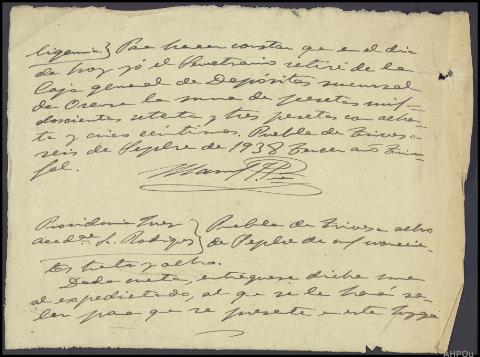 ligencia} Para hacer constar que en el dia
de hoy yó el Secretario retiré de la
Caja general de Depósitos sucursal
de Orense la suma de pesetas mil
doscientas setenta y tres pesetas con
ta y cinco céntimos. Puebla de Trives a
seis de Sepbre de 1938 Tercer año Triun-
fal.
Providencia Juez } Puebla de Trives a ocho
acc. Sr. Rodrigez } de Sepbre de mil novecien-
tos treinta y ocho.
Dada cuenta, entréguese dicha suma
al expedientado, al que se le hará sa-
ber para que se presente en este Juzga
AHPOu